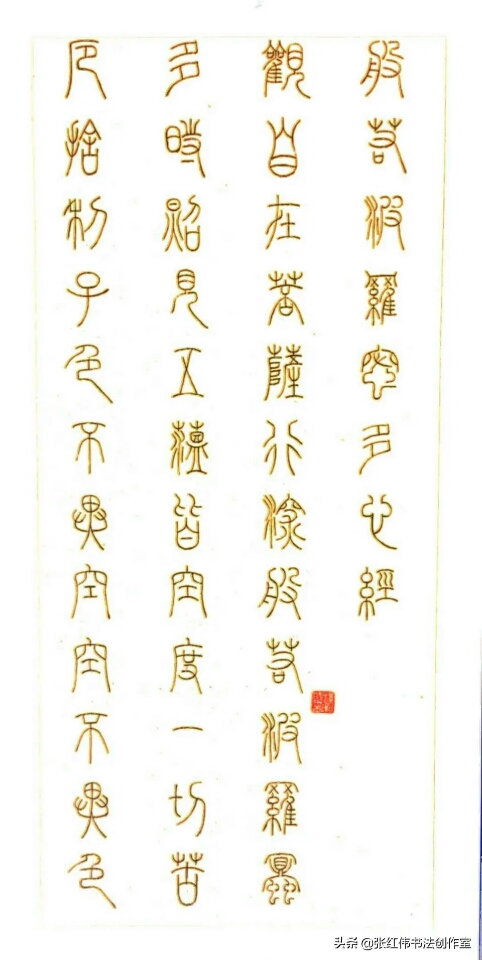 般若波羅密多心經
觀自在菩薩行深般若波羅蜜
多時照見五蘊皆空度一切苦
厄捨利子色不異空空不異色
头条 @张红伟书法创作室